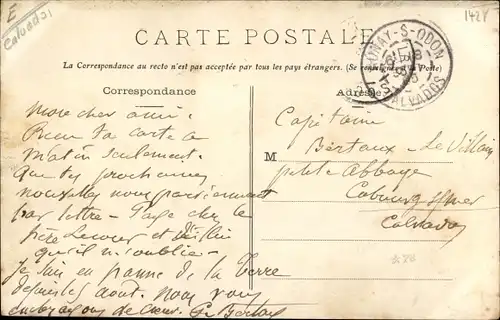 E
Calvados
1428
CARTE POSTALE
AUNAY-S-ODON
CALVADOS
La Correspondance au recto n'est pas acceptée par tous les pays étrangers. (Se renseigner à la Poste)
Correspondance
Adresse
Mon cher ami.
Reçu ta carte ce
matin seulement.
Que tes prochaines
nouvelles nous parviennent
par lettre - chez le
père et
qu'il n'oublie -
Je suis en panne de la Terre
depuis les août. Nous vous
embrassons de cœur. G. Bertaux
Capitaine
M Bertaux - Le Villain
petite Abbaye
Cabourg s/mer
Calvados